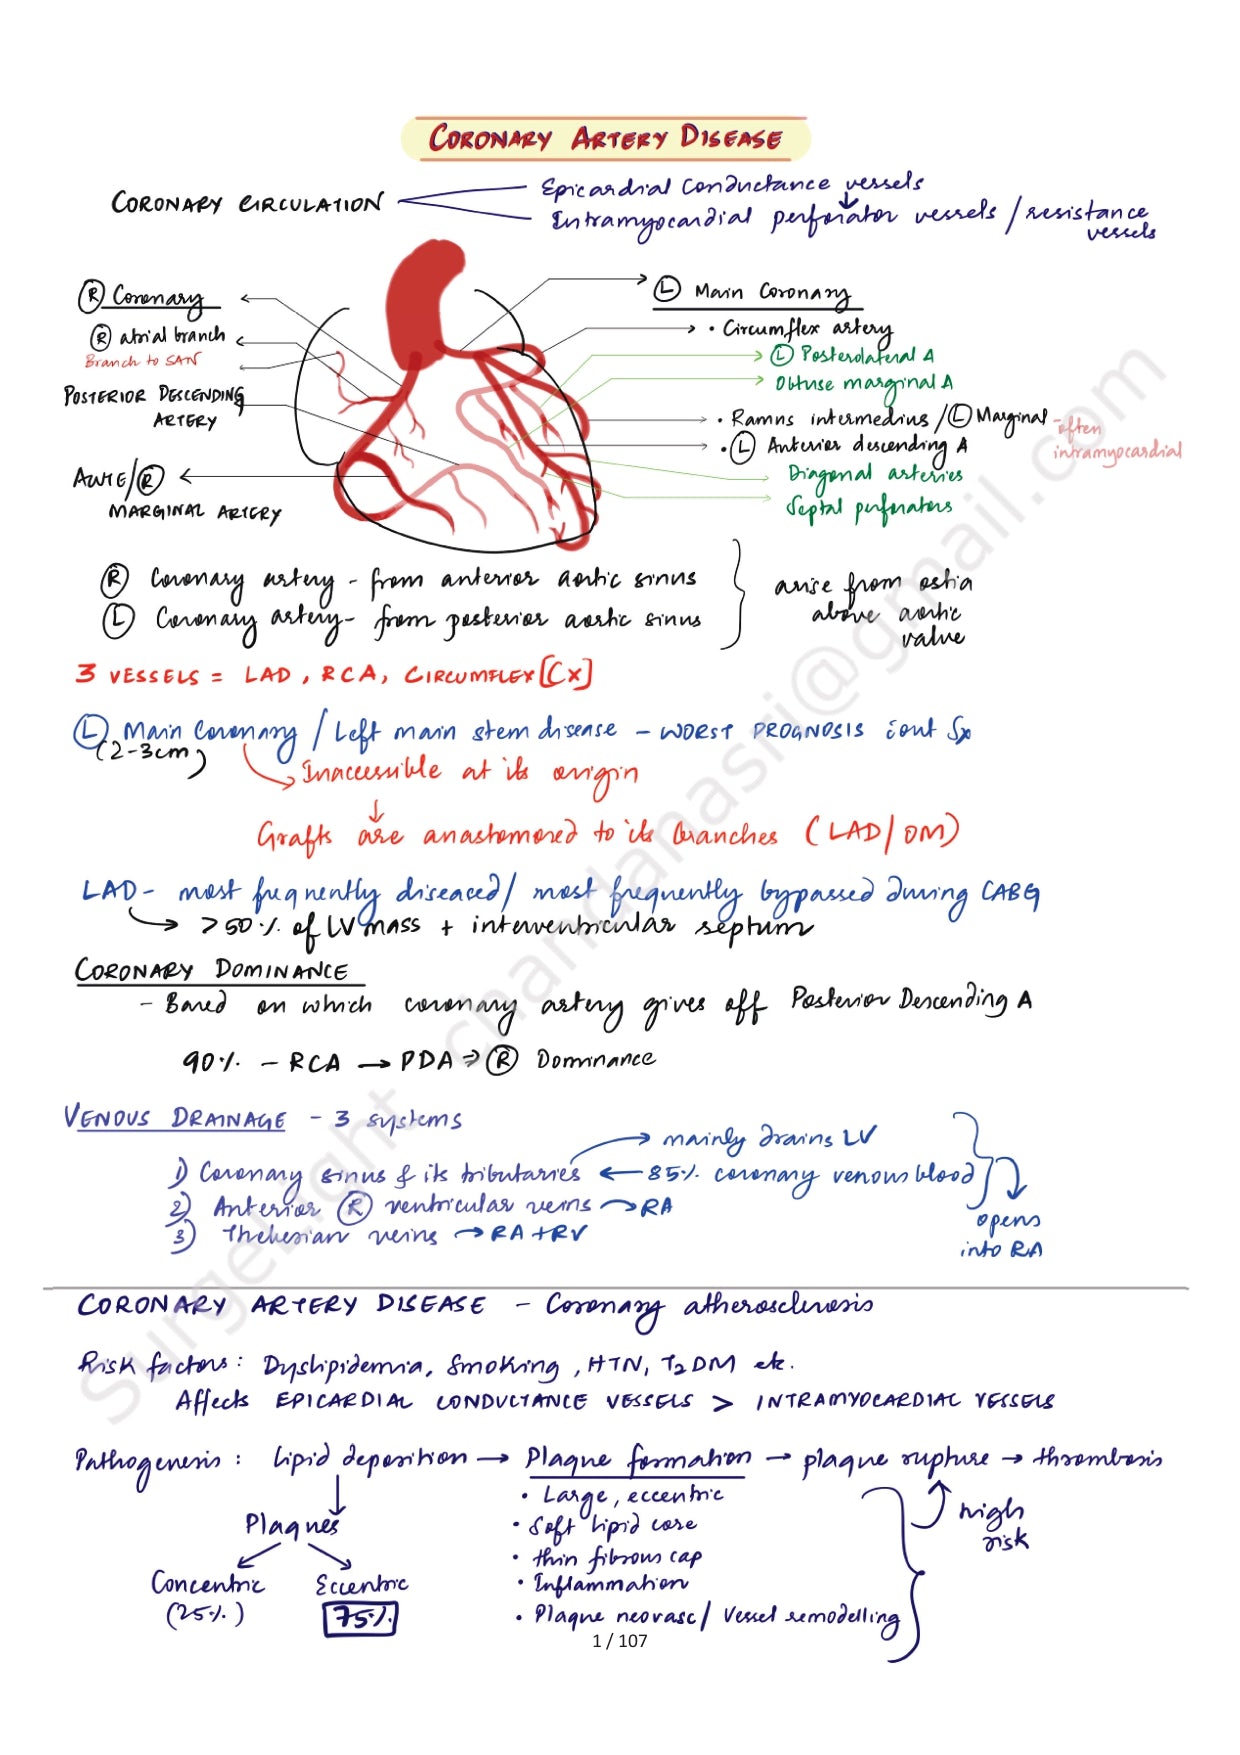 CORONARY ARTERY DISEASE
CORONARY CIRCULATION
Epicardial Conductance vessels
Intramyocardial perforator vessels / resistance vessels
Ⓡ Coronary
Ⓡ atrial branch
Branch to SAN
POSTERIOR DESCENDING
ARTERY
ACUTE/Ⓡ
MARGINAL ARTERY
Ⓛ Main Coronary
• Circumflex artery
Ⓛ Posterolateral A
Obtuse marginal A
• Ramus intermedius /Ⓛ Marginal - often intramyocardial
• Ⓛ Anterior descending A
Diagonal arteries
Septal perforators
Ⓡ Coronary artery - from anterior aortic sinus
Ⓛ Coronary artery - from posterior aortic sinus
arise from ostia
above aortic
valve
3 VESSELS = LAD, RCA, CIRCUMFLEX [CX]
Ⓛ Main Coronary / Left main stem disease - WORST PROGNOSIS s̄out Sx
(2-3cm)
→ Inaccessible at its origin
↓
Grafts are anastomosed to its branches (LAD/OM)
LAD - most frequently diseased/ most frequently bypassed during CABG
→ >50% of LV mass + interventricular septum
CORONARY DOMINANCE
- Based on which coronary artery gives off Posterior Descending A
90% - RCA → PDA ⇒ Ⓡ Dominance
VENOUS DRAINAGE - 3 systems
→ mainly drains LV
1) Coronary sinus & its tributaries ← 85% coronary venous blood
2) Anterior Ⓡ ventricular veins → RA
3) Thebesian veins → RA + RV
opens
into RA
CORONARY ARTERY DISEASE - Coronary atherosclerosis
Risk factors: Dyslipidemia, Smoking, HTN, T2DM etc.
Affects EPICARDIAL CONDUCTANCE VESSELS > INTRAMYOCARDIAL VESSELS
Pathogenesis: lipid deposition → Plaque formation → plaque rupture → thrombosis
Plaques
Concentric
(25%)
Eccentric
75%
• Large, eccentric
• Soft lipid core
• thin fibrous cap
• Inflammation
• Plaque neovasc/ Vessel remodelling
high
risk
1 / 107
SurgeLight chandanasri@gmail.com